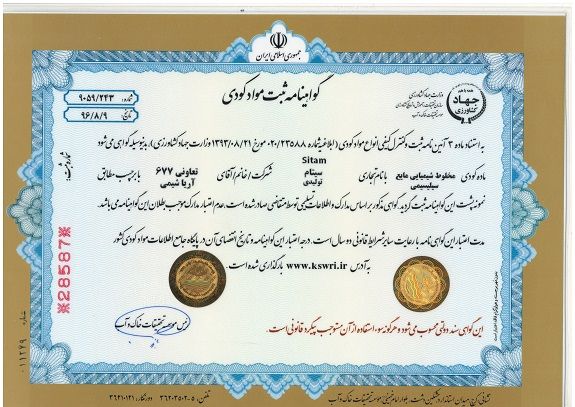 جمهوری اسلامی ایران
گواهینامه ثبت مواد کودی
شماره: ۹۰۵۹/۲۴۳
تاریخ: ۹۶/۸/۹
وزارت جهاد کشاورزی
همه با هم
جهاد
کشاورزی
به استناد ماده ۳ آئین نامه ثبت و کنترل کیفی انواع مواد کودی (ابلاغیه شماره ۰۲۰/۲۳۵۸۸ مورخ ۱۳۹۳/۰۸/۲۱ وزارت جهاد کشاورزی)، بدینوسیله گواهی می شود
ماده کودی مخلوط شیمیایی مایع سیلیسیمی با نام تجاری Sitam سیتام تولیدی شرکت/خانم/آقای تعاونی ۶۷۷ آریا شیمی با برچسب مطابق
نمونه پشت این گواهینامه ثبت گردید. گواهی مذکور بر اساس مدارک و اطلاعات تسلیمی توسط متقاضی صادر شده است. عدم اعتبار مدارک موجب بطلان این گواهینامه می باشد.
مدت اعتبار این گواهی نامه با رعایت سایر شرایط قانونی دو سال است. درجه اعتبار این گواهینامه و تاریخ انقضای آن در پایگاه جامع اطلاعات مواد کودی کشور
به آدرس www.kswri.ir بارگذاری شده است.
رئیس موسسه تحقیقات خاک و آب
این گواهی سند دولتی محسوب می شود و هرگونه سوء استفاده از آن مستوجب پیگرد قانونی است.
شماره ثبت:
※28587※
شماره ۰۱۱۲۷۹
نشانی: کرج، میدان استاندارد، مشکین دشت، بلوار امام خمینی، موسسه تحقیقات خاک و آب
تلفن: ۵-۳۶۲۰۲۵۰۲ دورنگار: ۳۶۲۱۰۱۲۱